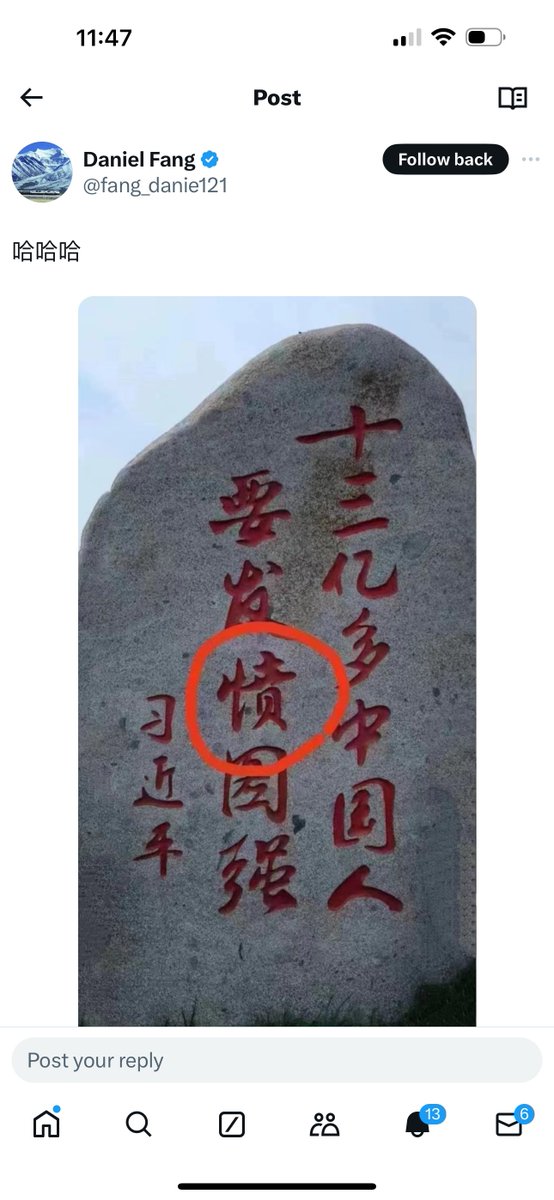 11:47
Post
Daniel Fang
@fang_danie121
Follow back
哈哈哈
十三亿多中国人
要发愤图强
习近平
Post your reply
13
6